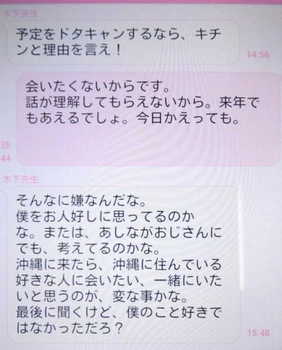 木下先生
予定をドタキャンするなら、キチ
ンと理由を言え！
14:56
会いたくないからです。
話が理解してもらえないから。来年で
もあえるでしょ。今日かえっても。
44
木下先生
そんなに嫌なんだな。
僕をお人好しに思ってるのか
な。または、あしながおじさんに
でも、考えてるのかな。
沖縄に来たら、沖縄に住んでいる
好きな人に会いたい、一緒にいた
いと思うのが、変な事かな。
最後に聞くけど、僕のこと好きで
はなかっただろ？
15:48